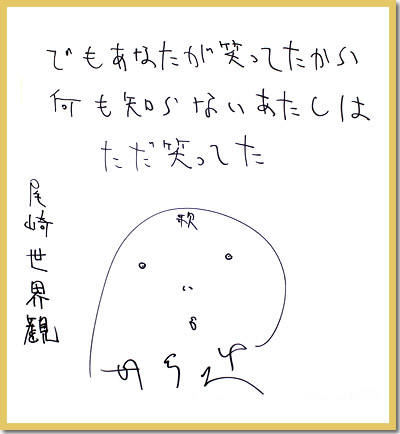 でもあなたが笑ってたから
何も知らないあたしは
ただ笑ってた
尾崎世界観